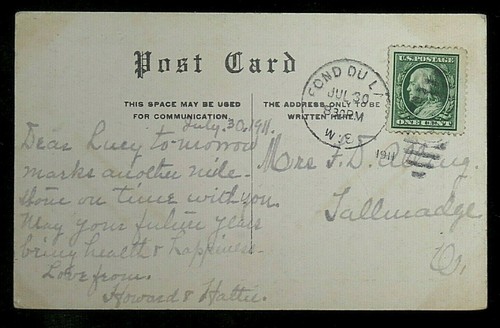 Post Card
THIS SPACE MAY BE USED
FOR COMMUNICATION.
THE ADDRESS ONLY TO BE
WRITTEN HERE.
July, 30, 1911.
Dear Lucy to-morrow
marks another mile-
stone on time with you.
May your future years
bring health & happiness.
Love from.
Howard & Hattie.
Mrs F. D.
Tallmadge
O.
FOND DU
JUL 30
830PM
WIS
1911
U.S. POSTAGE
ONE CENT